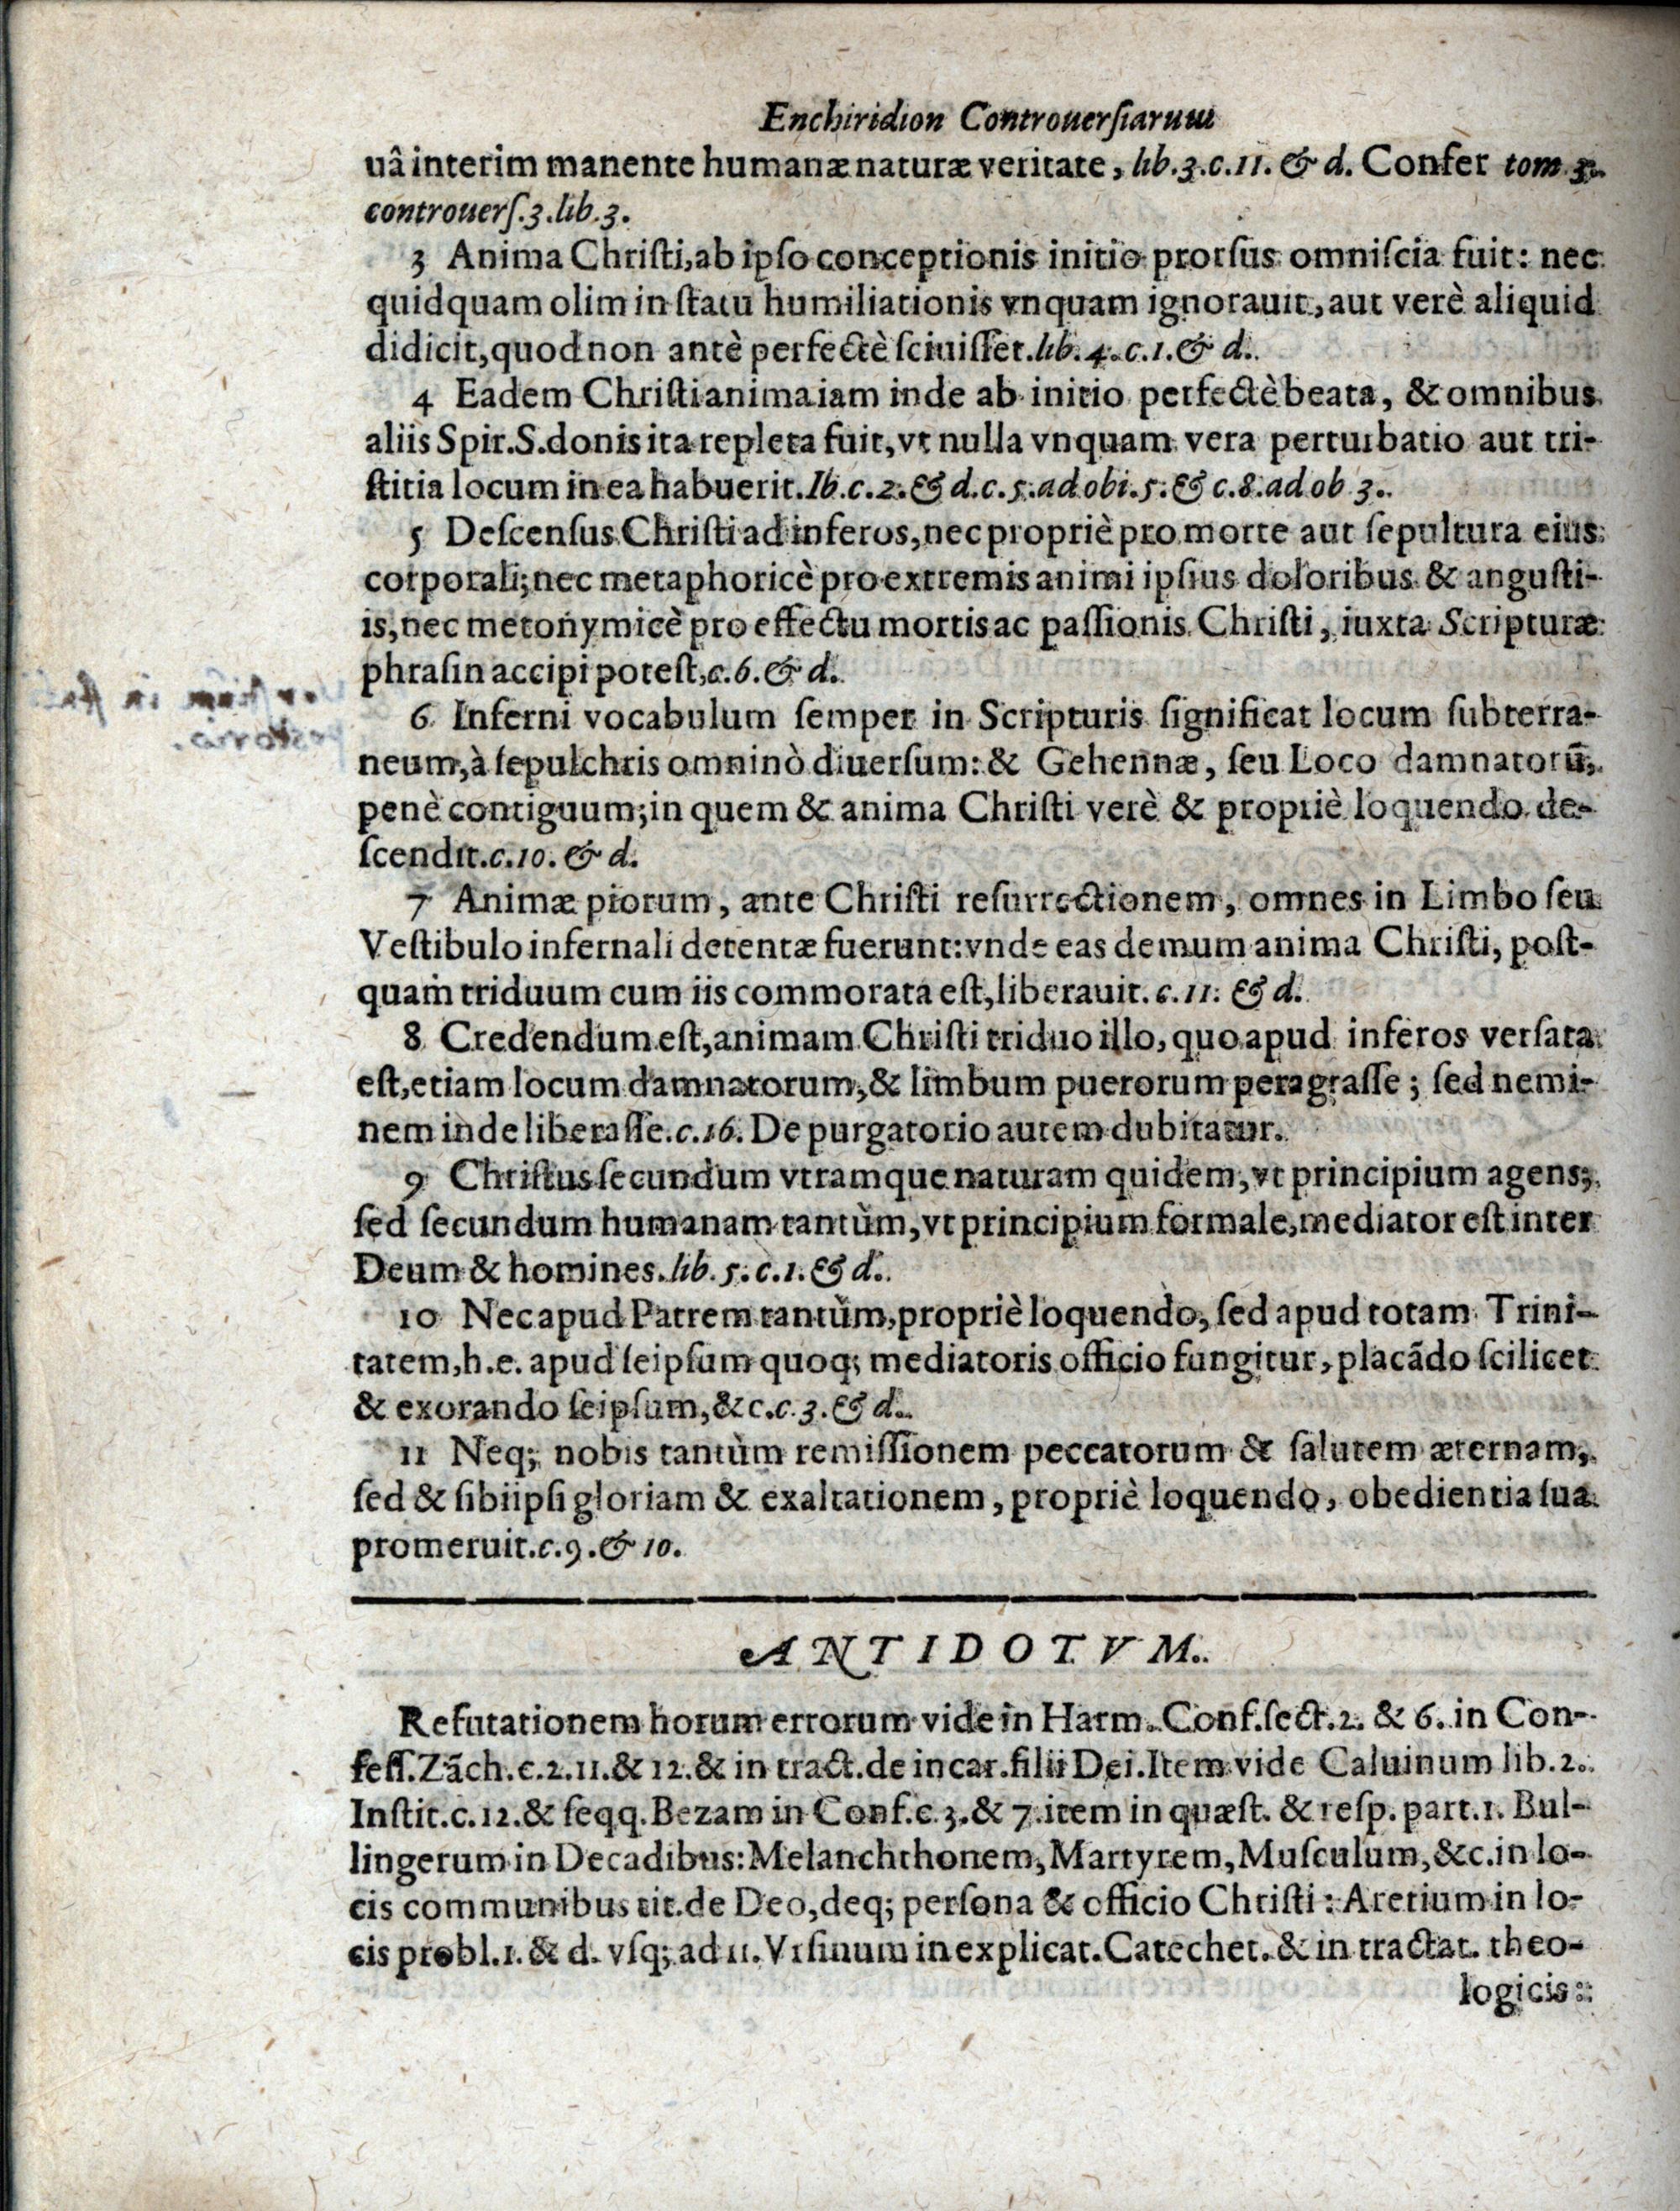 Enchiridion Controuerſiarum
uâ interim manente humanæ naturæ veritate, lib. 3. c. 11. & d. Confer tom. 3.
controuerſ. 3. lib. 3.
3 Anima Chriſti, ab ipſo conceptionis initio prorſus omniſcia fuit: nec
quidquam olim in ſtatu humiliationis vnquam ignorauit, aut verè aliquid
didicit, quod non antè perfectè ſciuiſſet. lib. 4. c. 1. & d.
4 Eadem Chriſti anima iam inde ab initio perfectè beata, & omnibus
aliis Spir. S. donis ita repleta fuit, vt nulla vnquam vera perturbatio aut tri-
ſtitia locum in ea habuerit. Ib. c. 2. & d. c. 5. ad obi. 5. & c. 8. ad ob 3.
5 Deſcenſus Chriſti ad inferos, nec propriè pro morte aut ſepultura eius
corporali; nec metaphoricè pro extremis animi ipſius doloribus & anguſti-
is, nec metonymicè pro effectu mortis ac paſſionis Chriſti, iuxta Scripturæ
phraſin accipi poteſt, c. 6. & d.
6 Inferni vocabulum ſemper in Scripturis ſignificat locum ſubterra-
neum, à ſepulchris omninò diuerſum: & Gehennæ, ſeu Loco damnatorũ,
penè contiguum; in quem & anima Chriſti verè & propriè loquendo de-
ſcendit. c. 10. & d.
7 Animæ piorum, ante Chriſti reſurrectionem, omnes in Limbo ſeu
Veſtibulo infernali detentæ fuerunt: vnde eas demum anima Chriſti, poſt-
quam triduum cum iis commorata eſt, liberauit. c. 11. & d.
8 Credendum eſt, animam Chriſti triduo illo, quo apud inferos verſata
eſt, etiam locum damnatorum, & limbum puerorum peragraſſe; ſed nemi-
nem inde liberaſſe. c. 16. De purgatorio autem dubitatur.
9 Chriſtus ſecundum vtramque naturam quidem, vt principium agens;
ſed ſecundum humanam tantùm, vt principium formale, mediator eſt inter
Deum & homines. lib. 5. c. 1. & d.
10 Nec apud Patrem tantùm, propriè loquendò, ſed apud totam Trini-
tatem, h.e. apud ſeipſum quoq; mediatoris officio fungitur, placãdo ſcilicet
& exorando ſeipſum, &c. c. 3. & d.
11 Neq; nobis tantùm remiſſionem peccatorum & ſalutem æternam,
ſed & ſibiipſi gloriam & exaltationem, propriè loquendo, obedientia ſua
promeruit. c. 9. & 10.
ANTIDOTVM.
Refutationem horum errorum vide in Harm. Conf. ſect. 2. & 6. in Con-
feſſ. Zãch. c. 2. 11. & 12. & in tract. de incar. filii Dei. Item vide Caluinum lib. 2.
Inſtit. c. 12. & ſeqq. Bezam in Conf. c. 3. & 7. item in quæſt. & reſp. part. 1. Bul-
lingerum in Decadibus: Melanchthonem, Martyrem, Muſculum, &c. in lo-
cis communibus tit. de Deo, deq; perſona & officio Chriſti: Aretium in lo-
cis probl. 1. & d. vſq; ad 11. Vrſinum in explicat. Catechet. & in tractat. theo-
logicis: